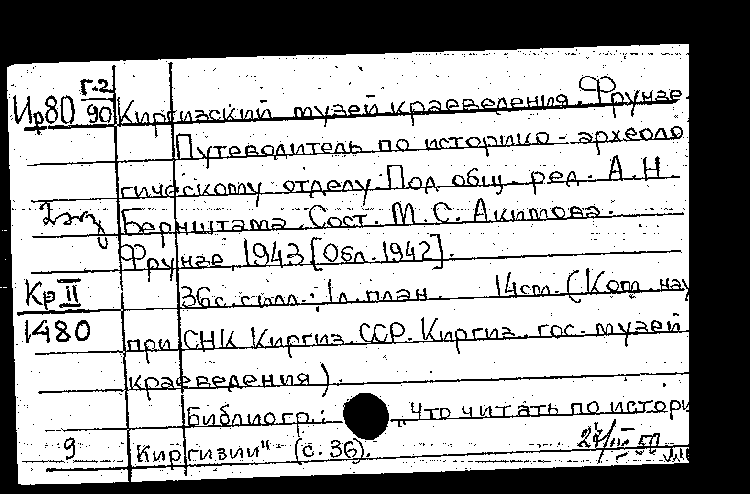 Г-2
Ир80 90 Киргизский музей краеведения. Фрунзе.
Путеводитель по историко-археоло
гическому отделу. Под общ. ред. А.Н.
2 экз Бернштама. Сост. М.С. Акимова.
Фрунзе, 1943 [Обл. 1942].
Кр II 36с. с илл.; 1л. план. 14см. (Ком. нау
1480 при СНК Киргиз. ССР. Киргиз. гос. музей
краеведения).
Библиогр.: „Что читать по истори
9 Киргизии" (с. 36).